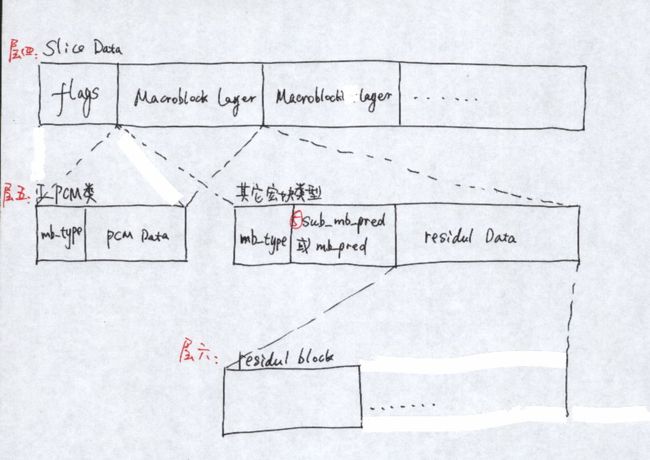 层四: Slice Data
flags
Macroblock Layer
Macroblock Layer
.......
层五: I_PCM类
其它宏块类型
mb_type
PCM Data
mb_type
5 sub_mb_pred
或 mb_pred
residul Data
层六: residul block
.......